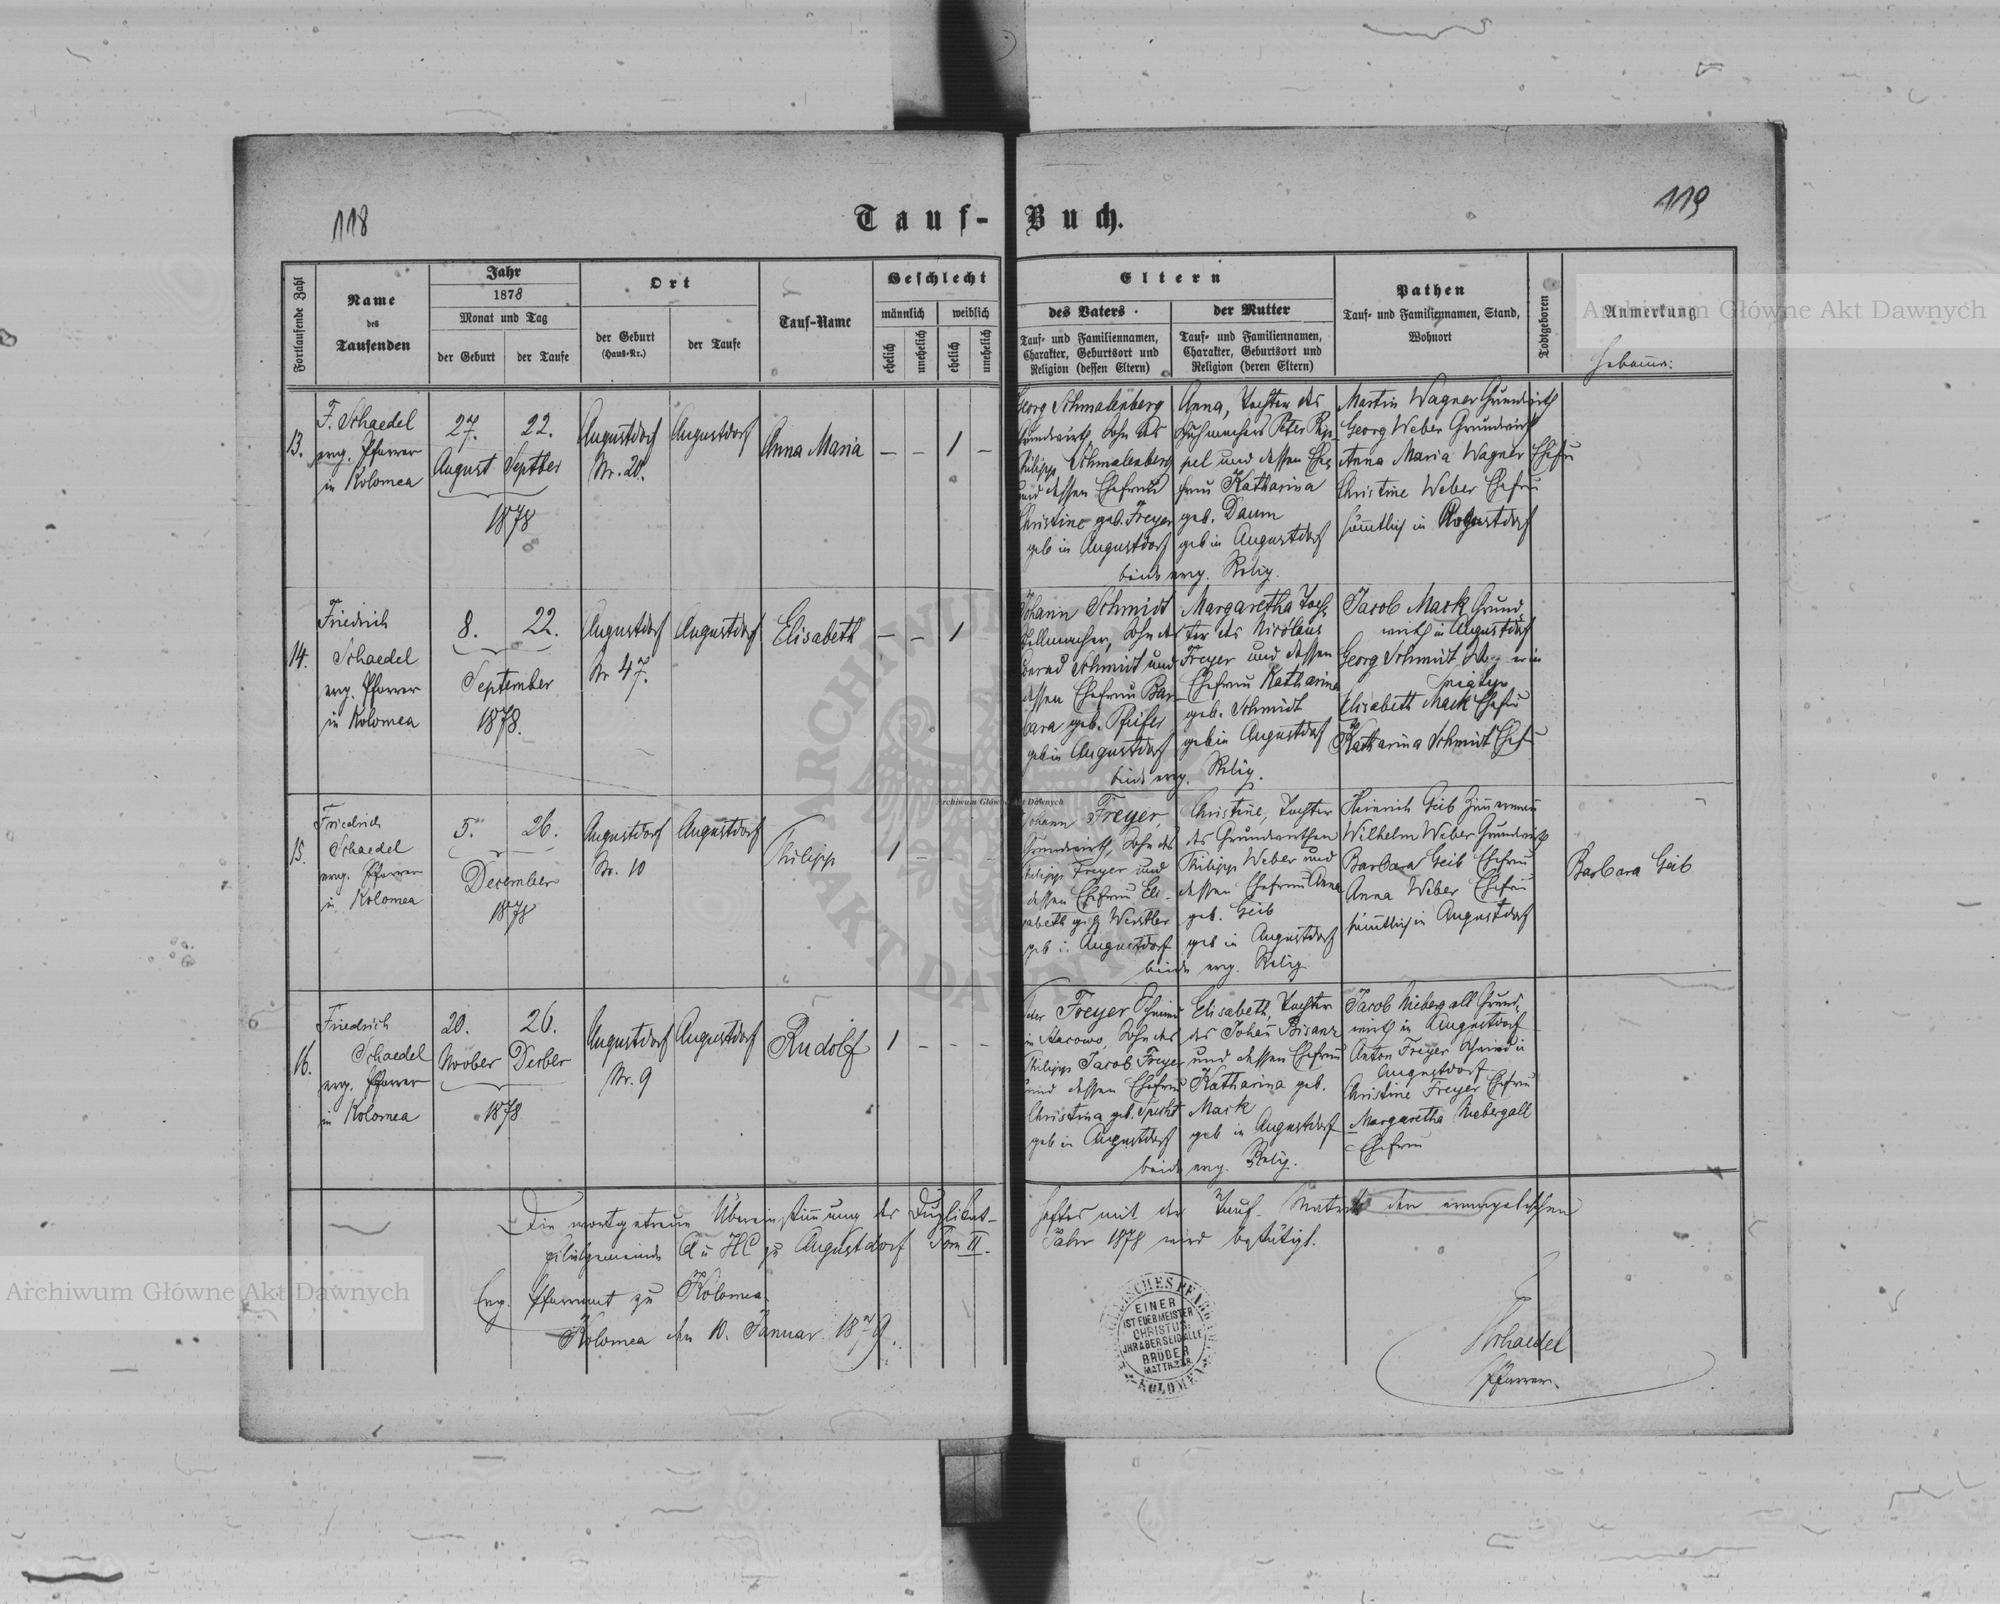 118
Tauf-Buch.
119
Fortlaufende Zahl
Name
des
Taufenden
Jahr
1878
Monat und Tag
der Geburt
der Taufe
Ort
der Geburt
(Haus-Nr.)
der Taufe
Tauf-Name
Geschlecht
männlich
weiblich
ehelich
unehelich
ehelich
unehelich
Eltern
des Vaters
Tauf- und Familiennamen,
Charakter, Geburtsort und
Religion (dessen Eltern)
der Mutter
Tauf- und Familiennamen,
Charakter, Geburtsort und
Religion (deren Eltern)
Pathen
Tauf- und Familiennamen, Stand,
Wohnort
Todtgeboren
Anmerkung
13.
F. Schaedel
evg. Pfarrer
in Kolomea
27.
August
22.
Septber
1878
Augustdorf
Nr. 20.
Augustdorf
Anna Maria
— — 1 —
Georg Schmalenberg
Grundwirth, Sohn des
Philipp Schmalenberg
und dessen Ehefrau
Christine geb. Freyer
geb in Augustdorf
Anna, Tochter des
Schuhmachers Peter Rip-
pel und dessen Ehe-
frau Katharina
geb. Daum
geb in Augustdorf
beide evg. Relig.
Martin Wagner Grundwirth
Georg Weber Grundwirth
Anna Maria Wagner Ehefrau
Christine Weber Ehefrau
sämmtlich in Augustdorf
14.
Friedrich
Schaedel
evg. Pfarrer
in Kolomea
8.
22.
September
1878.
Augustdorf
Nr 47.
Augustdorf
Elisabeth
— — 1
Johann Schmidt
Sohn des
Schmidt und
dessen Ehefrau Bar-
bara geb.
geb in Augustdorf
Margaretha Toch-
ter des Nicolaus
Freyer und dessen
Ehefrau Katharina
geb. Schmidt
geb in Augustdorf
beide evg. Relig.
Jacob Mack Grund-
wirth in Augustdorf
Georg Schmidt
Elisabeth Mack Ehefrau
Katharina Schmidt Ehefrau
15.
Friedrich
Schaedel
evg. Pfarrer
in Kolomea
5.
26.
December
1878
Augustdorf
Nr. 10
Augustdorf
Philipp
1 - - -
Johann Freyer,
Grundwirth, Sohn des
Philipp Freyer und
dessen Ehefrau Eli-
sabeth
geb in Augustdorf
Christine, Tochter
des Grundwirthen
Philipp Weber und
dessen Ehefrau Anna
geb. Geib
geb in Augustdorf
beide evg. Relig.
Heinrich Geib Zimmermann
Wilhelm Weber Grundwirth
Barbara Geib Ehefrau
Anna Weber Ehefrau
sämmtlich in Augustdorf
Barbara Geib
16.
Friedrich
Schaedel
evg. Pfarrer
in Kolomea
20.
Novber
26.
Decber
1878
Augustdorf
Nr. 9
Augustdorf
Rudolf
1 - - -
Peter Freyer Schmied
in Sohn des
Philipp Jacob Freyer
und dessen Ehefrau
Christina geb. Specht
geb in Augustdorf
Elisabeth, Tochter
des Johann Bisanz
und dessen Ehefrau
Katharina geb.
Mack
geb in Augustdorf
beide evg. Relig.
Jacob Niebergall Grund-
wirth in Augustdorf
Anton Freyer Schmied in
Augustdorf
Christine Freyer Ehefrau
Margaretha Niebergall
Ehefrau
Die wortgetreue Übereinstimmung des Duplicat-
Heftes mit der Tauf-Matrik der evangelischen
Filialgemeinde A u HC zu Augustdorf Tom II.
Jahr 1878 wird bestätigt.
Evg. Pfarramt zu Kolomea.
Kolomea den 10. Januar 1879.
EINER
IST EUER MEISTER
CHRISTUS
IHR ABER SEID ALLE
BRÜDER
MATTH 23.8.
KOLOMEA
Schaedel
Pfarrer.
Archiwum Główne Akt Dawnych
Archiwum Główne Akt Dawnych
Archiwum Główne Akt Dawnych